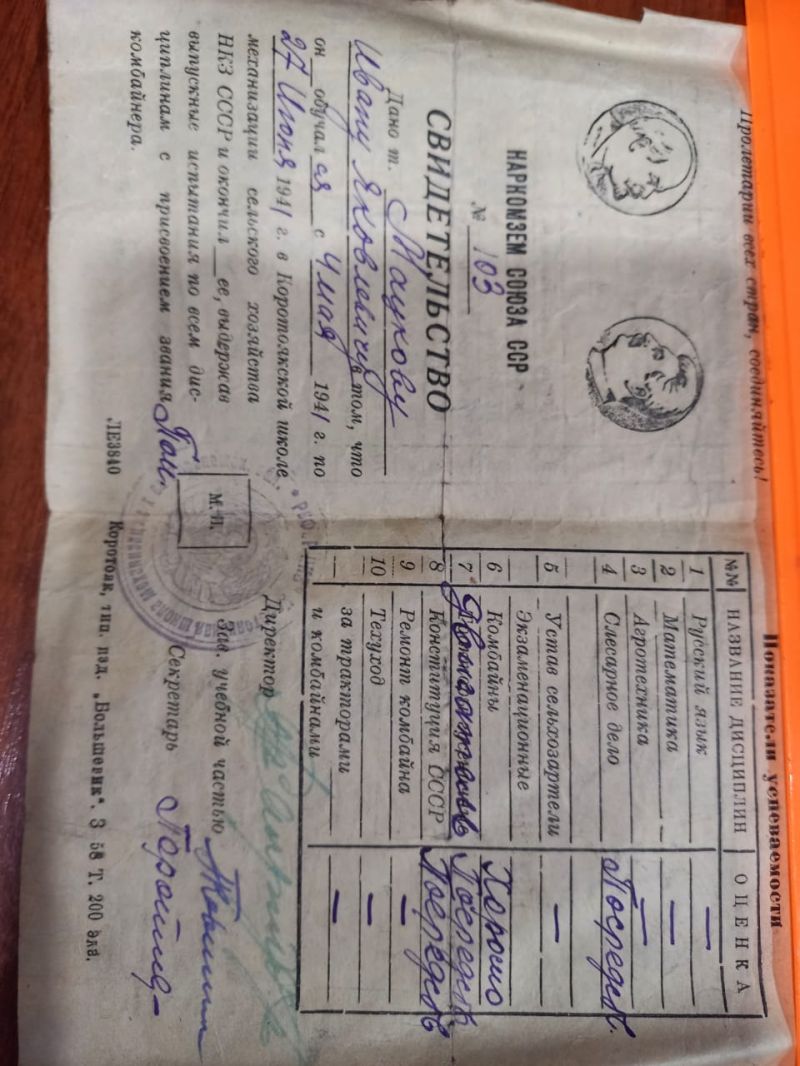 Пролетарии всех стран, соединяйтесь!
НАРКОМЗЕМ СОЮЗА ССР
№ 103
СВИДЕТЕЛЬСТВО
Дано т. Маукову
Ивану Яковлевичу в том, что
он обучался с 4 мая 1941 г. по
27 Июня 1941 г. в Коротоякской школе
механизации сельского хозяйства
НКЗ СССР и окончил ее, выдержав
выпускные испытания по всем дис-
циплинам с присвоением звания Пом.
комбайнера.
ЛЕ3840
Показатели успеваемости
№№ НАЗВАНИЕ ДИСЦИПЛИН ОЦЕНКА
1 Русский язык —
2 Математика —
3 Агротехника —
4 Слесарное дело Посредств.
5 Устав сельхозартели —
Экзаменационные
6 Комбайны Хорошо
7 Посредств
8 Конституция СССР Посредств
9 Ремонт комбайна —
10 Техуход —
за тракторами
и комбайнами —
М. П.
Директор
Зав. учебной частью
Секретарь
Коротояк, тип. изд. „Большевик". З 58 Т. 200 экз.